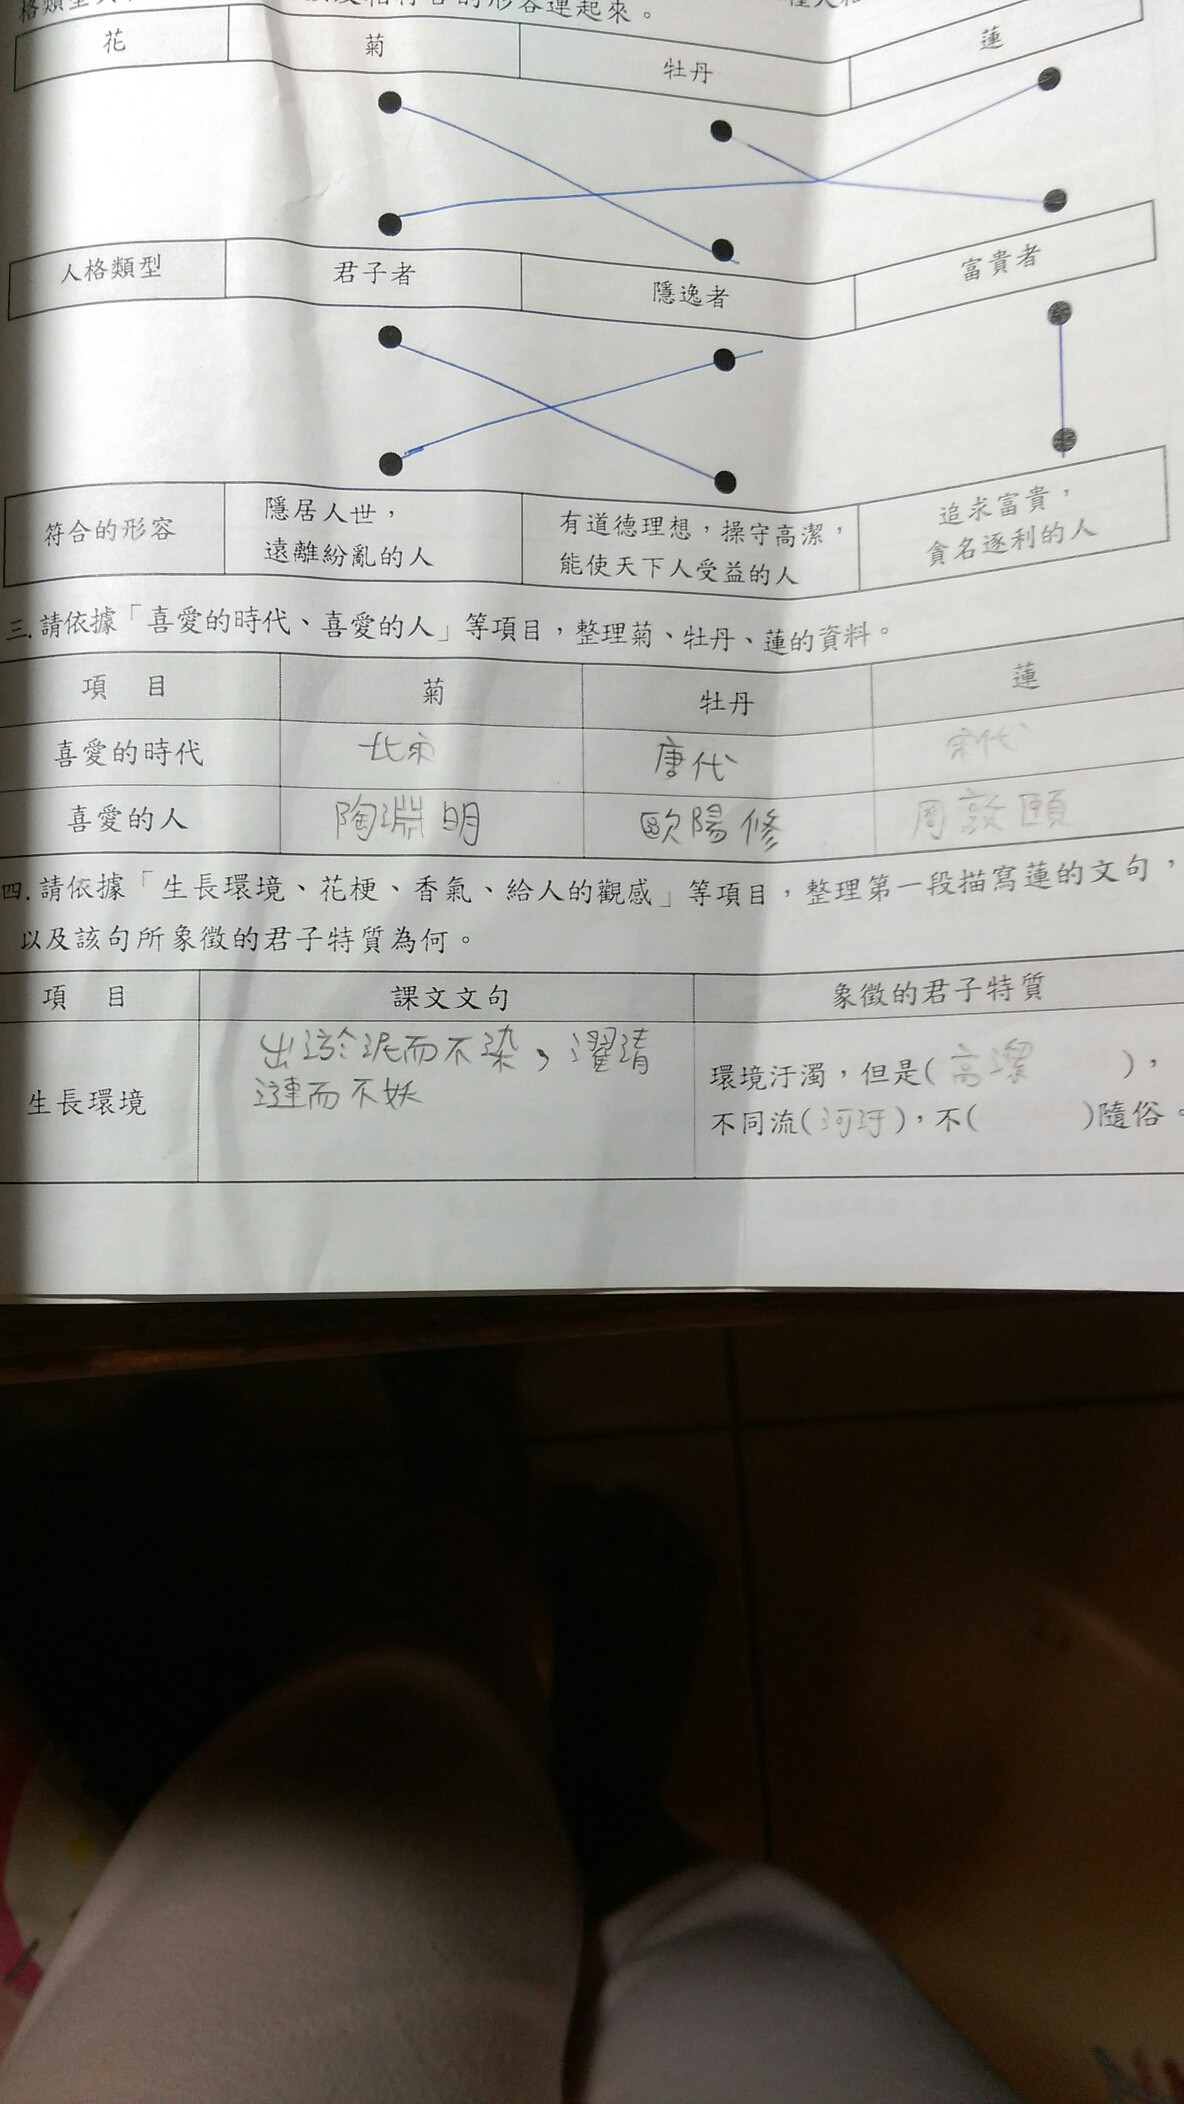 形容連起來。
花 菊 牡丹 蓮
人格類型 君子者 隱逸者 富貴者
符合的形容 隱居人世， 有道德理想，操守高潔， 追求富貴，
遠離紛亂的人 能使天下人受益的人 貪名逐利的人
三.請依據「喜愛的時代、喜愛的人」等項目，整理菊、牡丹、蓮的資料。
項 目 菊 牡丹 蓮
喜愛的時代 北宋 唐代 宋代
喜愛的人 陶淵明 歐陽修 周敦頤
四.請依據「生長環境、花梗、香氣、給人的觀感」等項目，整理第一段描寫蓮的文句，
以及該句所象徵的君子特質為何。
項 目 課文文句 象徵的君子特質
生長環境 出淤於泥而不染，濯清
漣而不妖
環境汙濁，但是(高潔)，
不同流(河汙)，不( )隨俗。